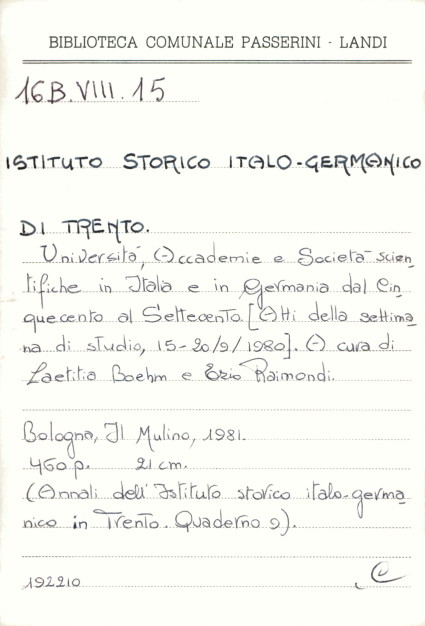 BIBLIOTECA COMUNALE PASSERINI - LANDI
16B.VIII.15
ISTITUTO STORICO ITALO-GERMANICO
DI TRENTO.
Università, Accademie e Società scien
tifiche in Itala e in Germania dal Cin
quecento al Settecento. [Atti della settima
na di studio, 15-20/9/1980]. A cura di
Laetitia Boehm e Ezio Raimondi.
Bologna, Il Mulino, 1981.
460 p. 21 cm.
(Annali dell'Istituto storico italo-germa
nico in Trento. Quaderno 9).
192210